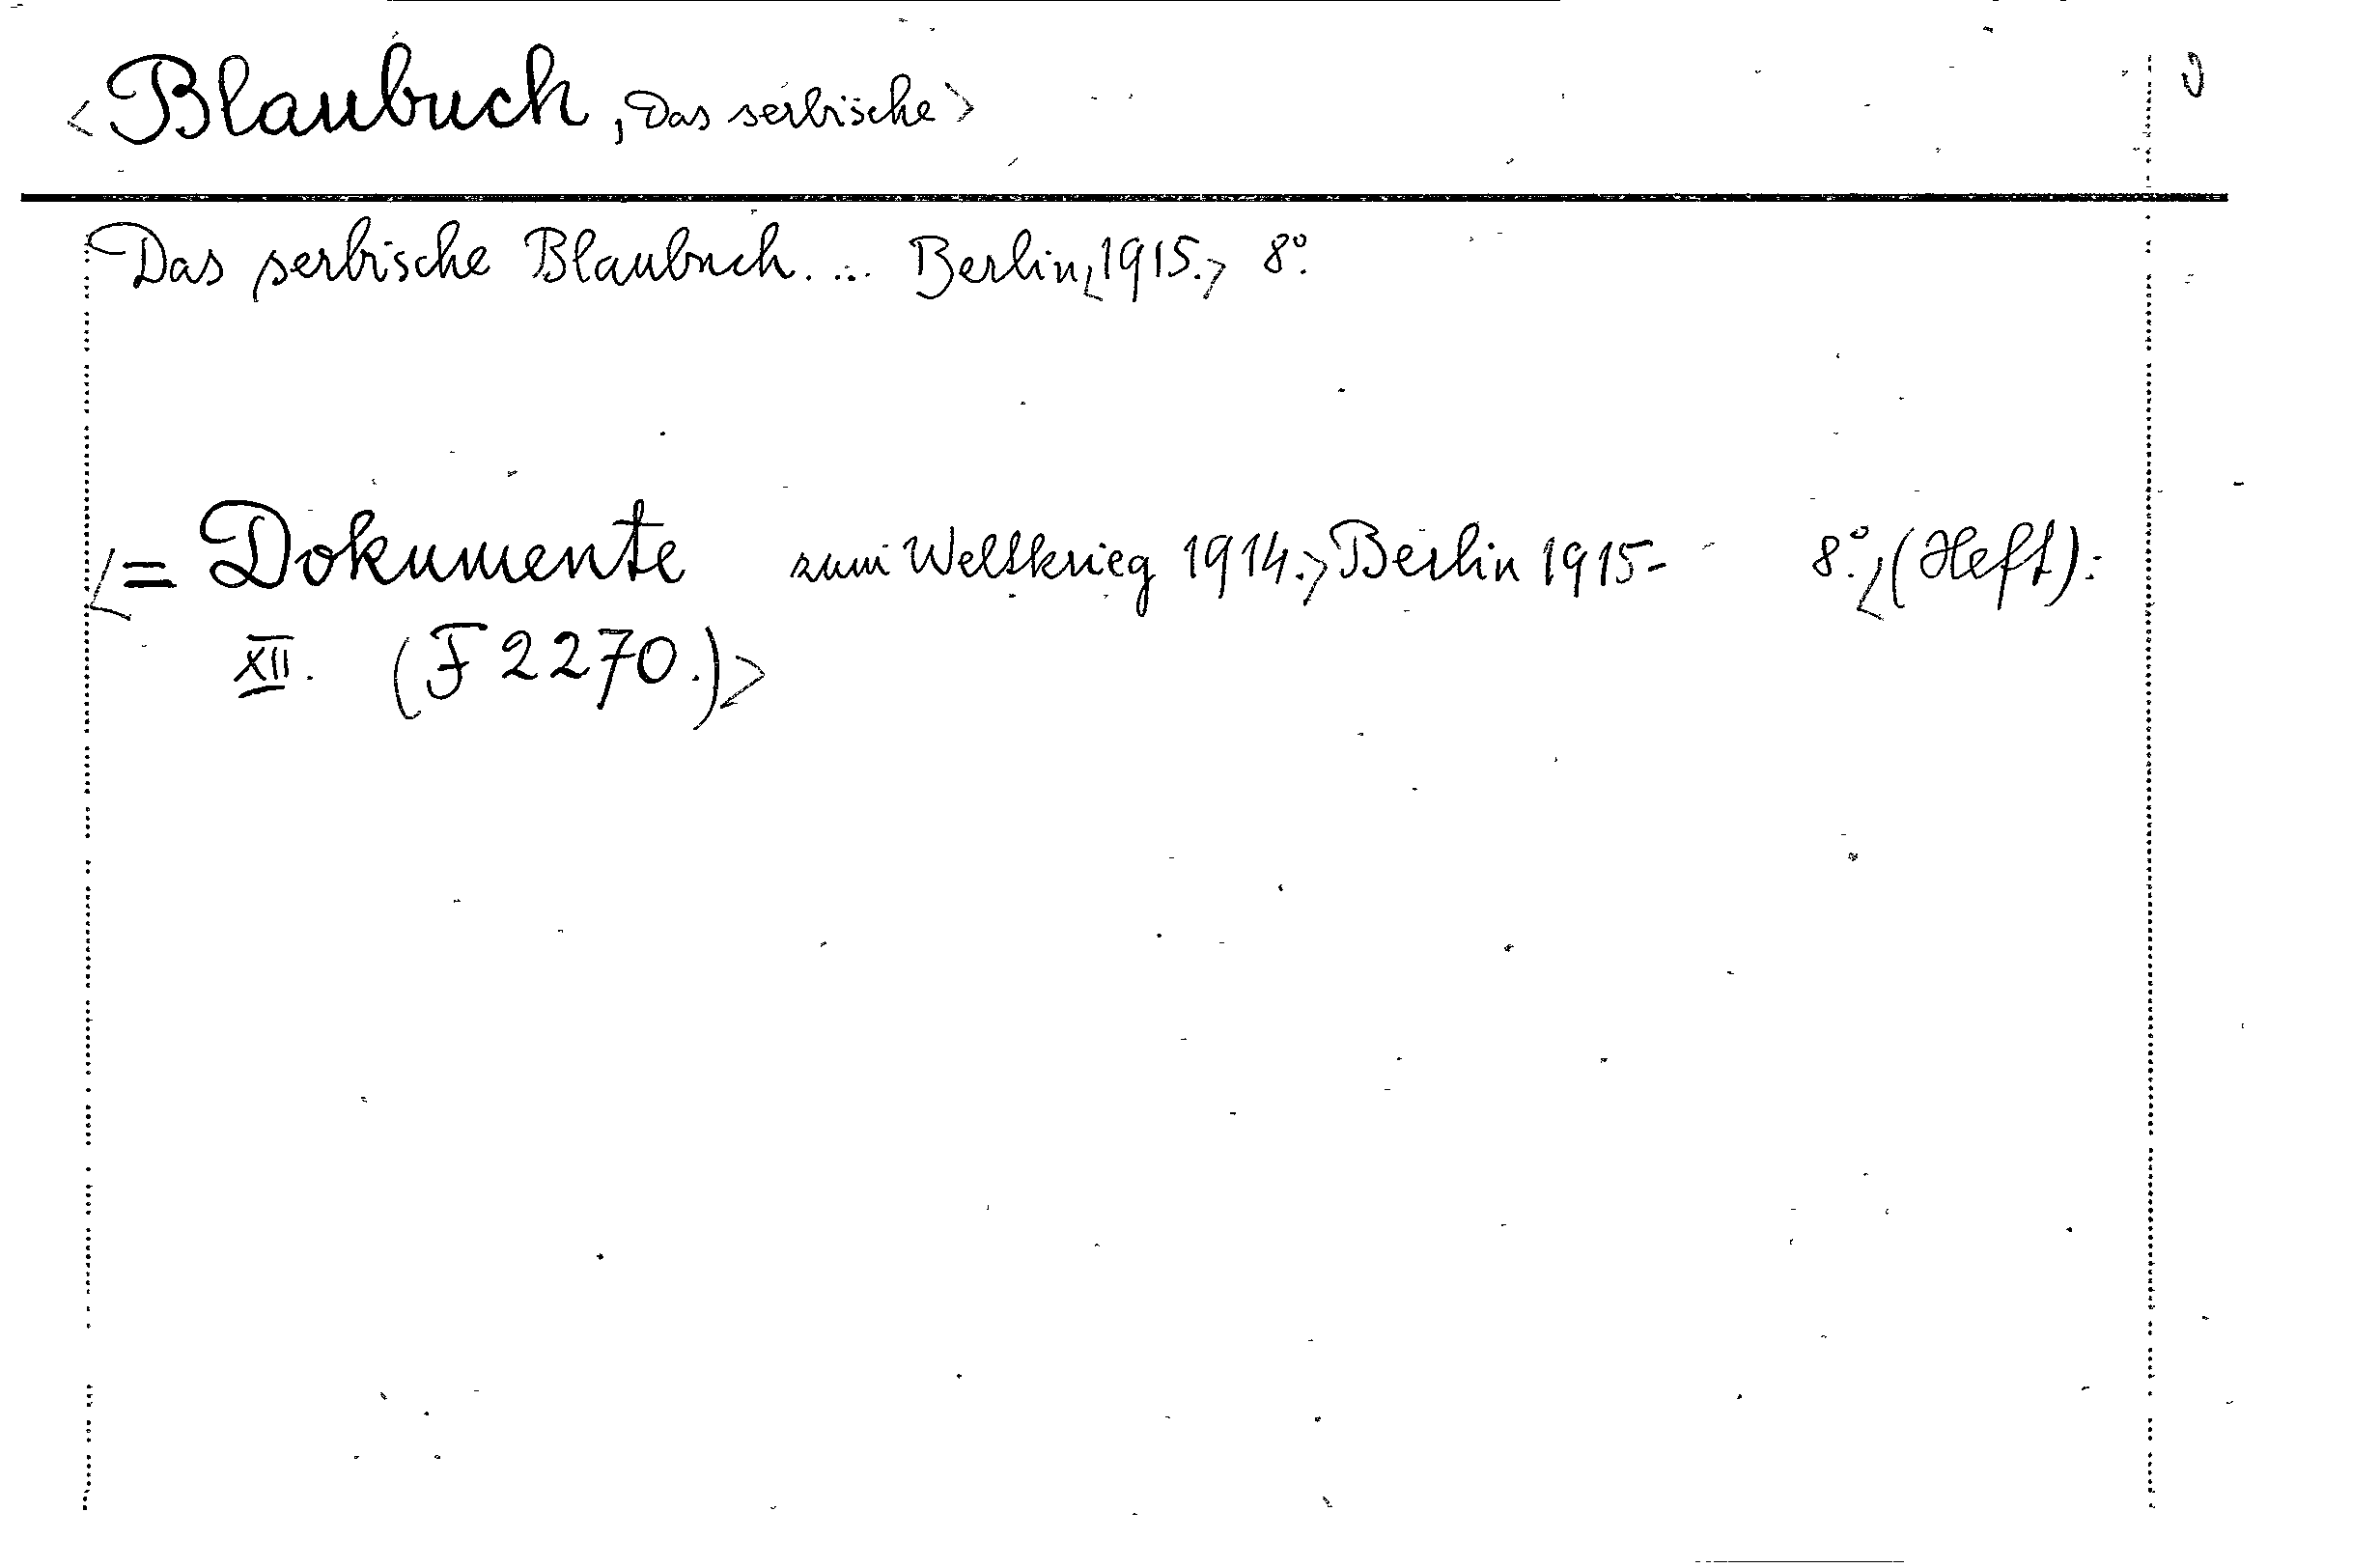 <Blaubuch, Das serbische>
Das serbische Blaubuch. ... Berlin<1915.> 8°.
<= Dokumente zum Weltkrieg 1914.> Berlin 1915- 8°.<(Heft):
XII. (F 2270.)>